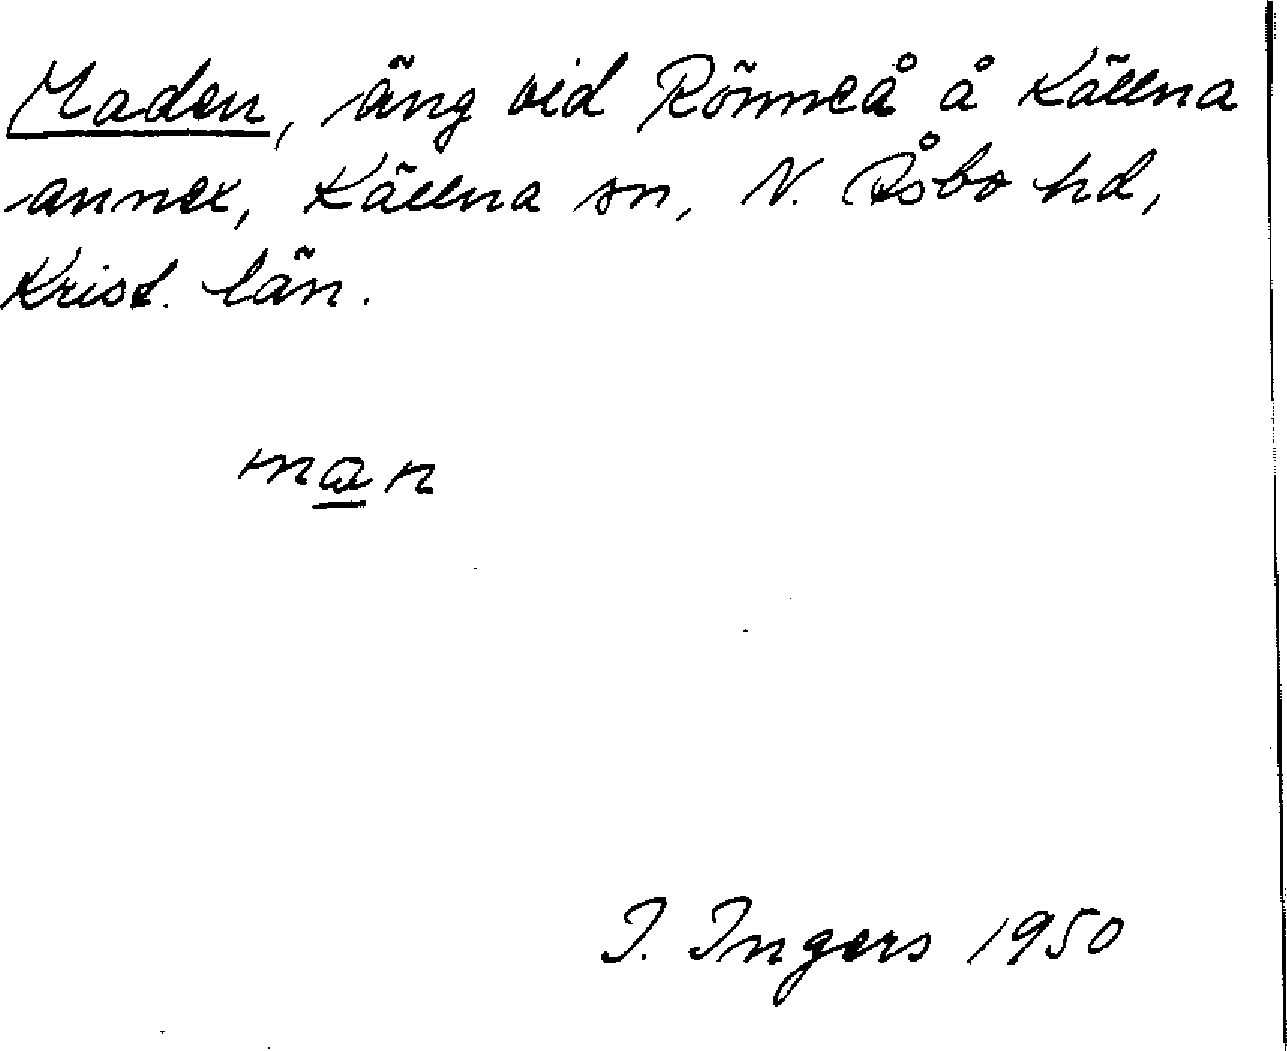 Maden, äng vid Rönneå å Källna
annex, Källna sn, N. Åsbo hd,
Krist. län.
man
I. Ingers 1950